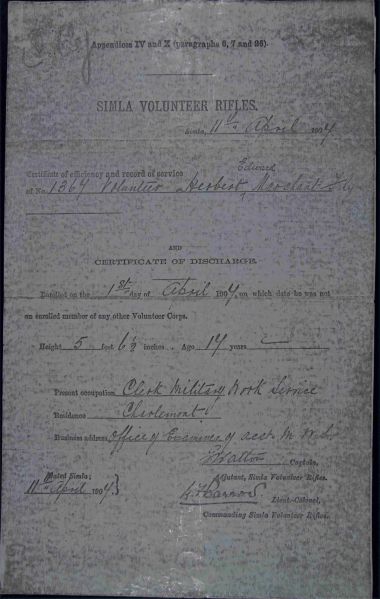 Appendices IV and X (paragraphs 6, 7 and 26).
SIMLA VOLUNTEER RIFLES.
Simla, 11th April 1904
Certificate of efficiency and record of service
Edward
of No. 1364 Volunteer Herbert Marchant
AND
CERTIFICATE OF DISCHARGE.
Enrolled on the 1st day of April 1904, on which date he was not
an enrolled member of any other Volunteer Corps.
Height 5 feet 6½ inches. Age 17 years
Present occupation Clerk Military Work Service
Residence Charlemont
Business address Office of Examiner of acct M. W. S.
Captain,
Adjutant, Simla Volunteer Rifles.
Dated Simla;
11th April 1904.
Lieut.-Colonel,
Commanding Simla Volunteer Rifles.